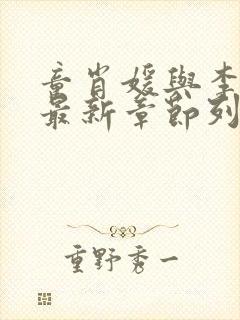 童肖媛與李
最新章節列
重野秀一